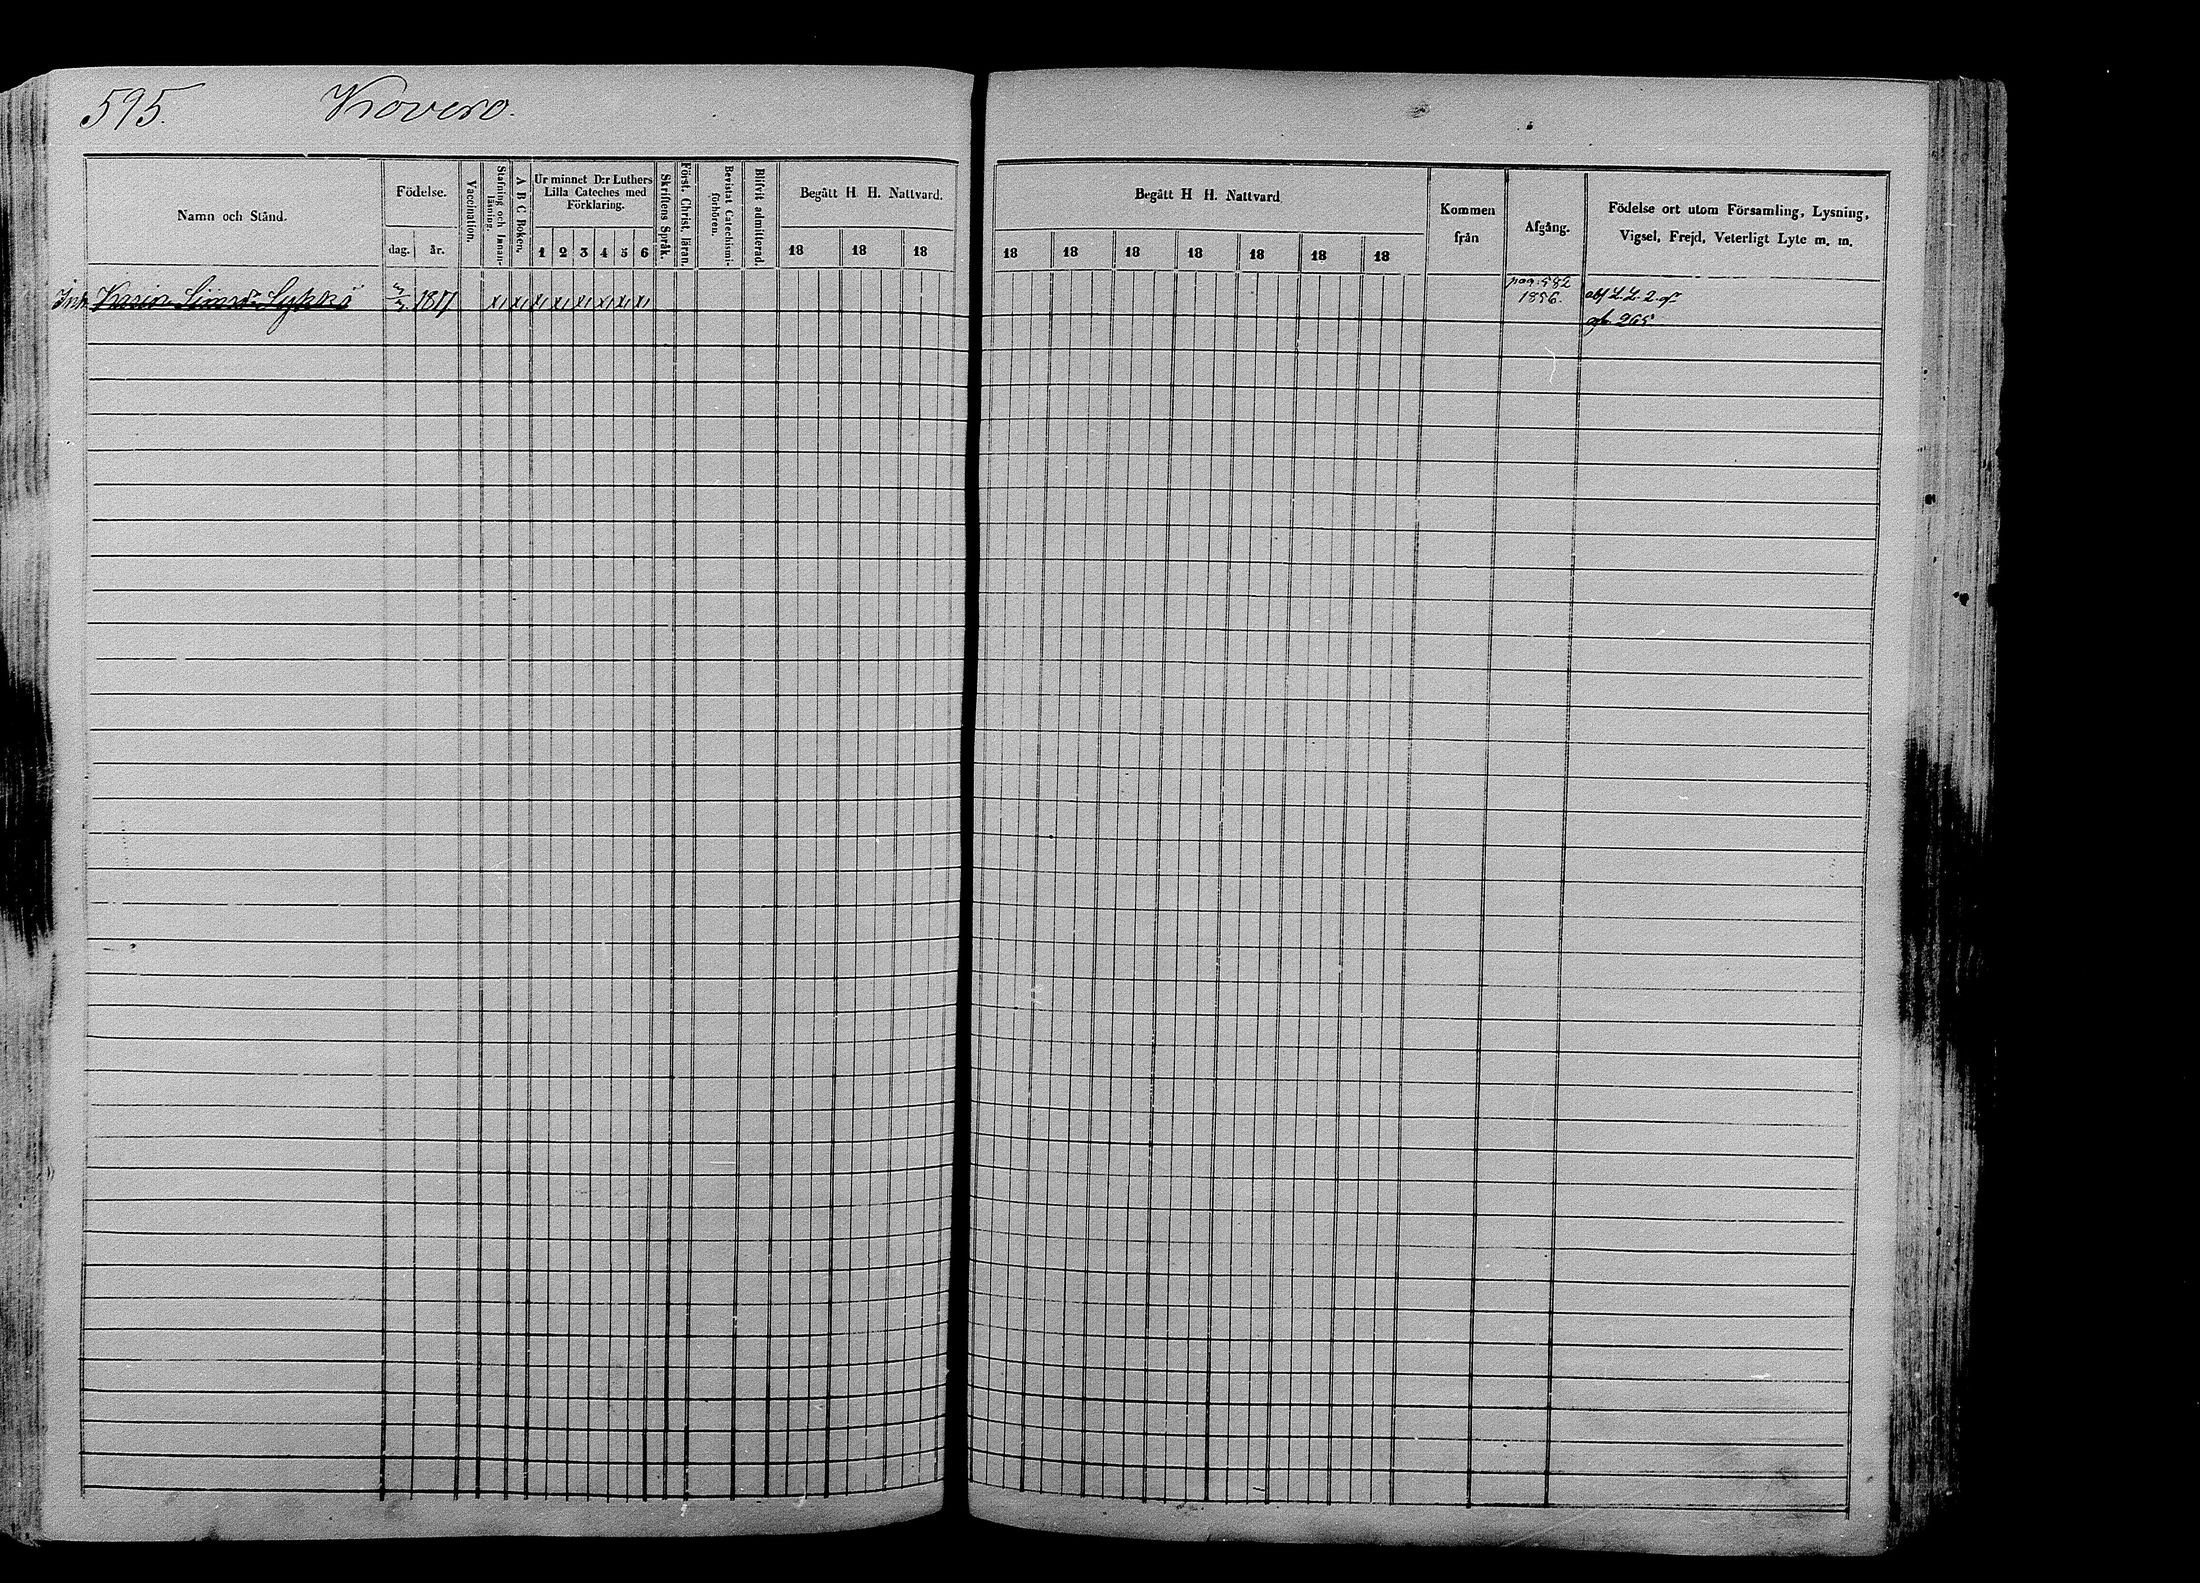 595. Krovero.
Namn och Stånd.
Födelse.
dag. år.
Vaccination.
Stafning och Innan-
läsning.
A B C Boken.
Ur minnet D:r Luthers
Lilla Cateches med
Förklaring.
1 2 3 4 5 6
Skriftens Språk.
Först. Christ. läran.
Bevistat Catechismi-
förhören.
Blifvit admitterad.
Begått H. H. Nattvard.
18 18 18
Begått H H. Nattvard
18 18 18 18 18 18 18
Kommen
från
Afgång.
Födelse ort utom Församling, Lysning,
Vigsel, Frejd, Veterligt Lyte m. m.
pag. 582
Lykkö 1817 x x x x x x x x 1856.
265